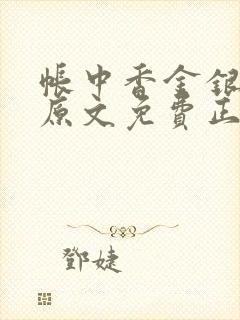 帳中香金銀
原文免費正
鄧婕